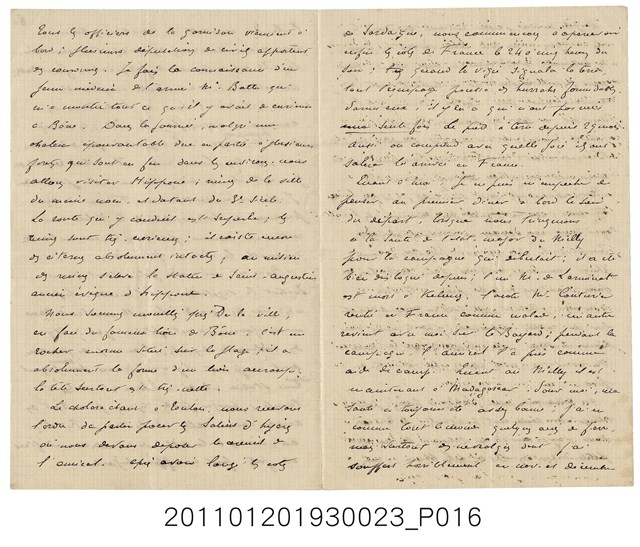 Tous les officiers de la garnison viennent à
bord ; plusieurs députations de civils apportent
des couronnes. Je fais la connaissance d'un
jeune médecin de l'armée Mr. Batte qui
m'a montré tout ce qu'il y avait de curieux
à Bône. Dans la journée, malgré une
chaleur épouvantable due en partie à plusieurs
forêts qui sont en feu dans les environs nous
allons visiter Hippone ; ruines de la ville
du même nom, et datant du 3e siècle.
La route qui y conduit est superbe ; les
ruines sont très curieuses ; il existe encore
des citernes absolument intactes, au milieu
des ruines s'élève la statue de Saint-Augustin
ancien évêque d'Hippone.
Nous sommes mouillés près de la ville,
en face du fameux lion de Bône. C'est un
rocher énorme situé sur la plage ; il a
absolument la forme d'un lion accroupi
la tête surtout est très nette.
Le choléra étant à Toulon, nous recevons
l'ordre de partir pour les Salins d'Hyères
où nous devons déposer le cercueil de
l'amiral. Après avoir longé les côtes
de Sardaigne, nous commençons à apercevoir
enfin les côtes de France le 24 à cinq heures du
soir ; quand la vigie signala la terre
tout l'équipage poussa des hurrahs formidables
il y en a qui n'ont pas mis
une seule fois le pied à terre depuis 29 mois
aussi on comprend avec quelle joie ils ont
salué leur arrivée en France.
Quant à moi : Je ne puis m'empêcher de
penser au premier dîner à bord le soir
du départ, lorsque nous trinquions
à la santé de l'état-major du Nielly
pour la campagne qui débutait ; il a été
bien disloqué depuis ; l'un Mr. de Larminat
est mort à Kelung. l'autre Mr. Couturier
rentré en France comme malade, un autre
revient avec moi sur le Bayard ; pendant la
campagne l'amiral l'a pris comme
aide de camp. Quant au Nielly il est
maintenant à Madagascar. Pour moi, ma
santé a toujours été assez bonne : j'ai eu
comme tout le monde quelques accès de fièvre
mais surtout des névralgies dont j'ai
souffert horriblement en nov. et décembre
201101201930023_P016